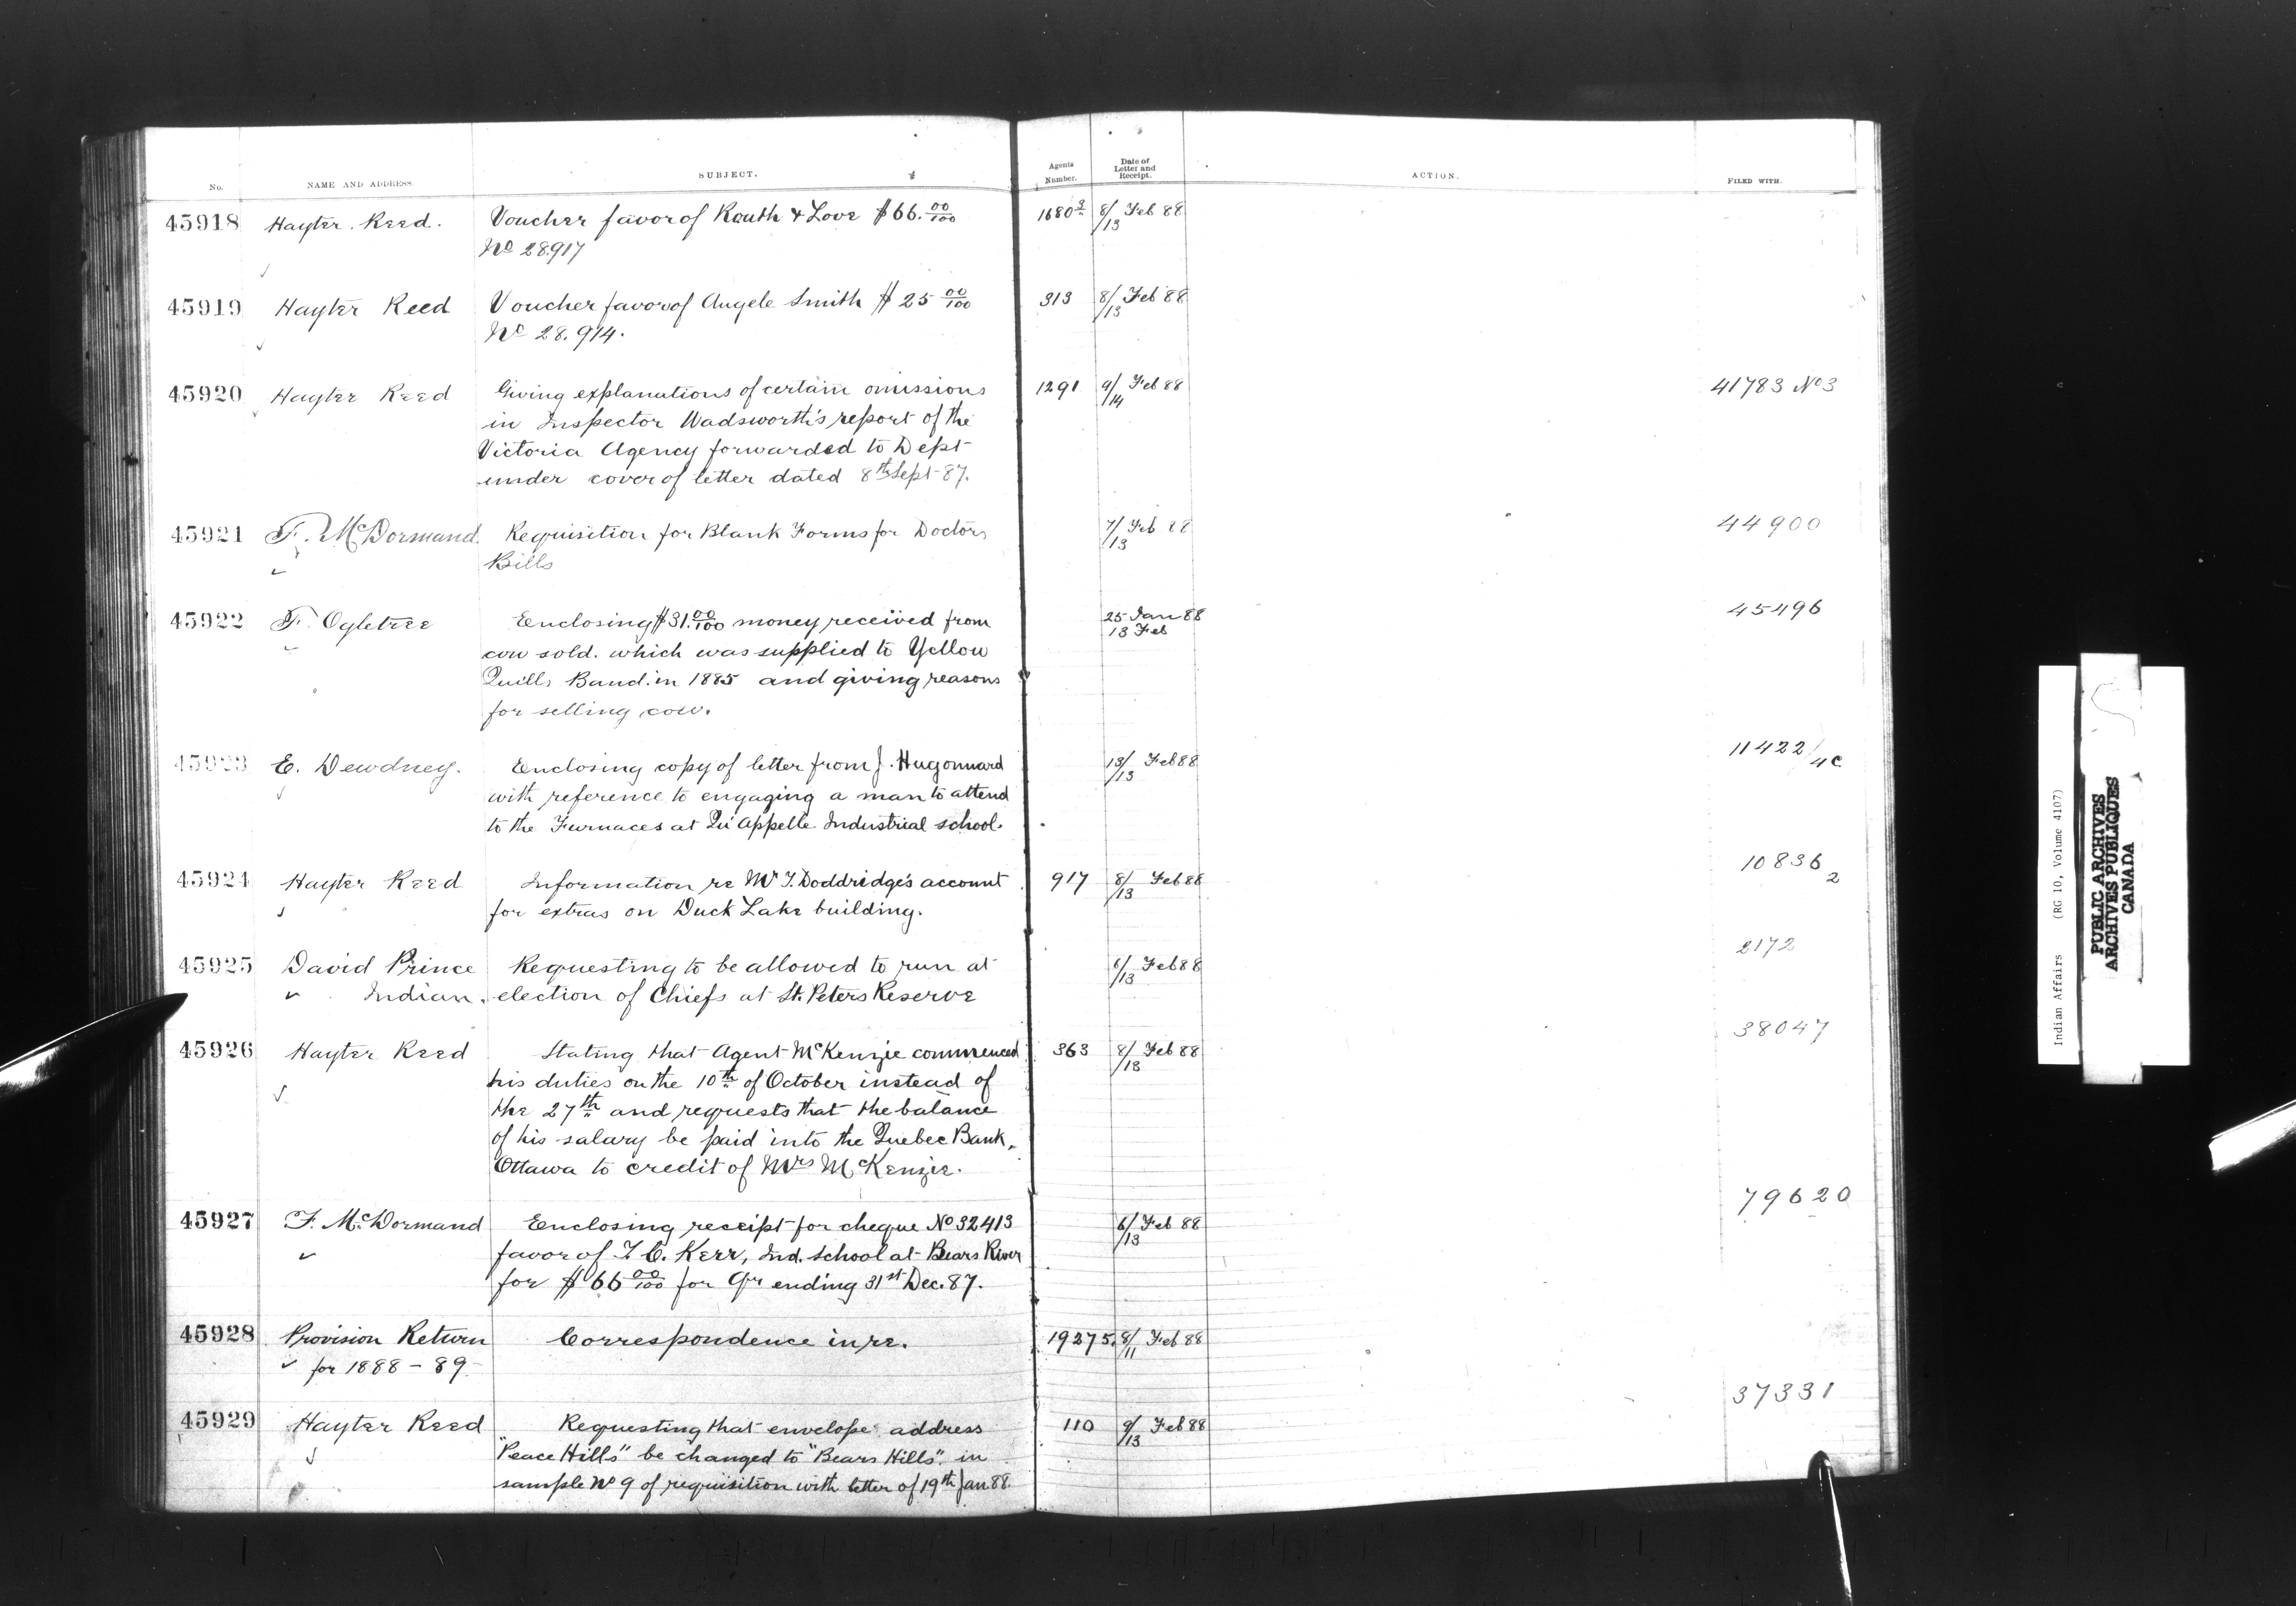 No. NAME AND ADDRESS. SUBJECT. Agents Number. Date of Letter and Receipt. ACTION. FILED WITH.
45918 Hayter Reed. Voucher favor of Routh & Love $66.00/100 1680 8/13 Feb 88
No 28917
45919 Hayter Reed Voucher favor of Angele Smith $25 00/100 313 8/13 Feb 88
No 28.914.
45920 Hayter Reed Giving explanations of certain omissions 1291 9/14 Feb 88 41783 No 3
in Inspector Wadsworth's report of the
Victoria Agency forwarded to Dept
under cover of letter dated 8th Sept 87.
45921 F. McDormand. Requisition for Blank Forms for Doctors 7/13 Feb 88 44900
Bills
45922 F. Ogletree Enclosing $31.00/100 money received from 25 Jan 88 45496
13 Feb
cow sold. which was supplied to Yellow
Quills Band. in 1885 and giving reasons
for selling cow.
45923 E. Dewdney. Enclosing copy of letter from J. Hugonnard 13/13 Feb 88 11422/4c
with reference to engaging a man to attend
to the Furnaces at Qu'Appelle Industrial school.
45924 Hayter Reed Information re Mr T. Doddridge's account 917 8/13 Feb 88 10836 2
for extras on Duck Lake building.
45925 David Prince Requesting to be allowed to run at 6/13 Feb 88 2172
Indian. election of Chiefs at St. Peters Reserve
45926 Hayter Reed Stating that Agent McKenzie commenced 363 8/13 Feb 88 38047
his duties on the 10th of October instead of
the 27th and requests that the balance
of his salary be paid into the Quebec Bank,
Ottawa to credit of Mrs McKenzie.
45927 F. McDormand Enclosing receipt for cheque No 32413 6/13 Feb 88 79620
favor of T. C. Kerr, Ind. School at Bears River
for $66 00/100 for Qr ending 31st Dec. 87.
45928 Provision Return Correspondence in re. 19275. 8/11 Feb 88
for 1888-89
45929 Hayter Reed Requesting that envelope address 110 9/13 Feb 88 37331
"Peace Hills" be changed to "Bears Hills". in
sample No 9 of requisition with letter of 19th Jan. 88.
Indian Affairs (RG 10, Volume 4107)
PUBLIC ARCHIVES
ARCHIVES PUBLIQUES
CANADA